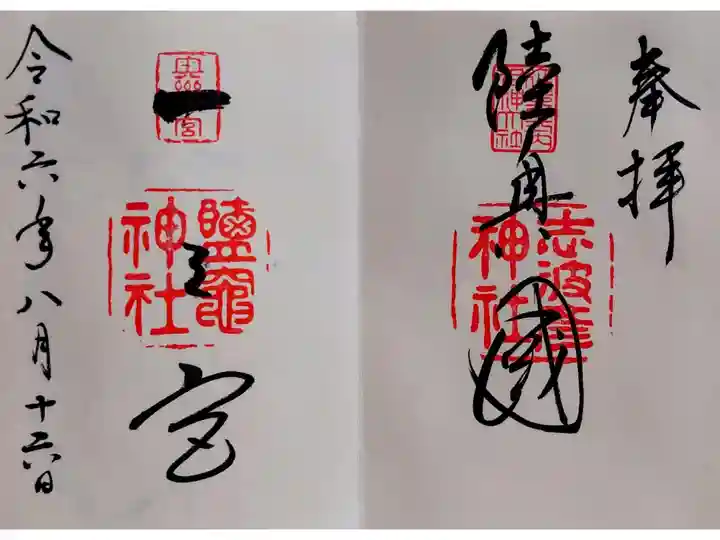 奉拝
陸奥國
志波彦
神社
一之宮
鹽竈
神社
令和六年八月十六日